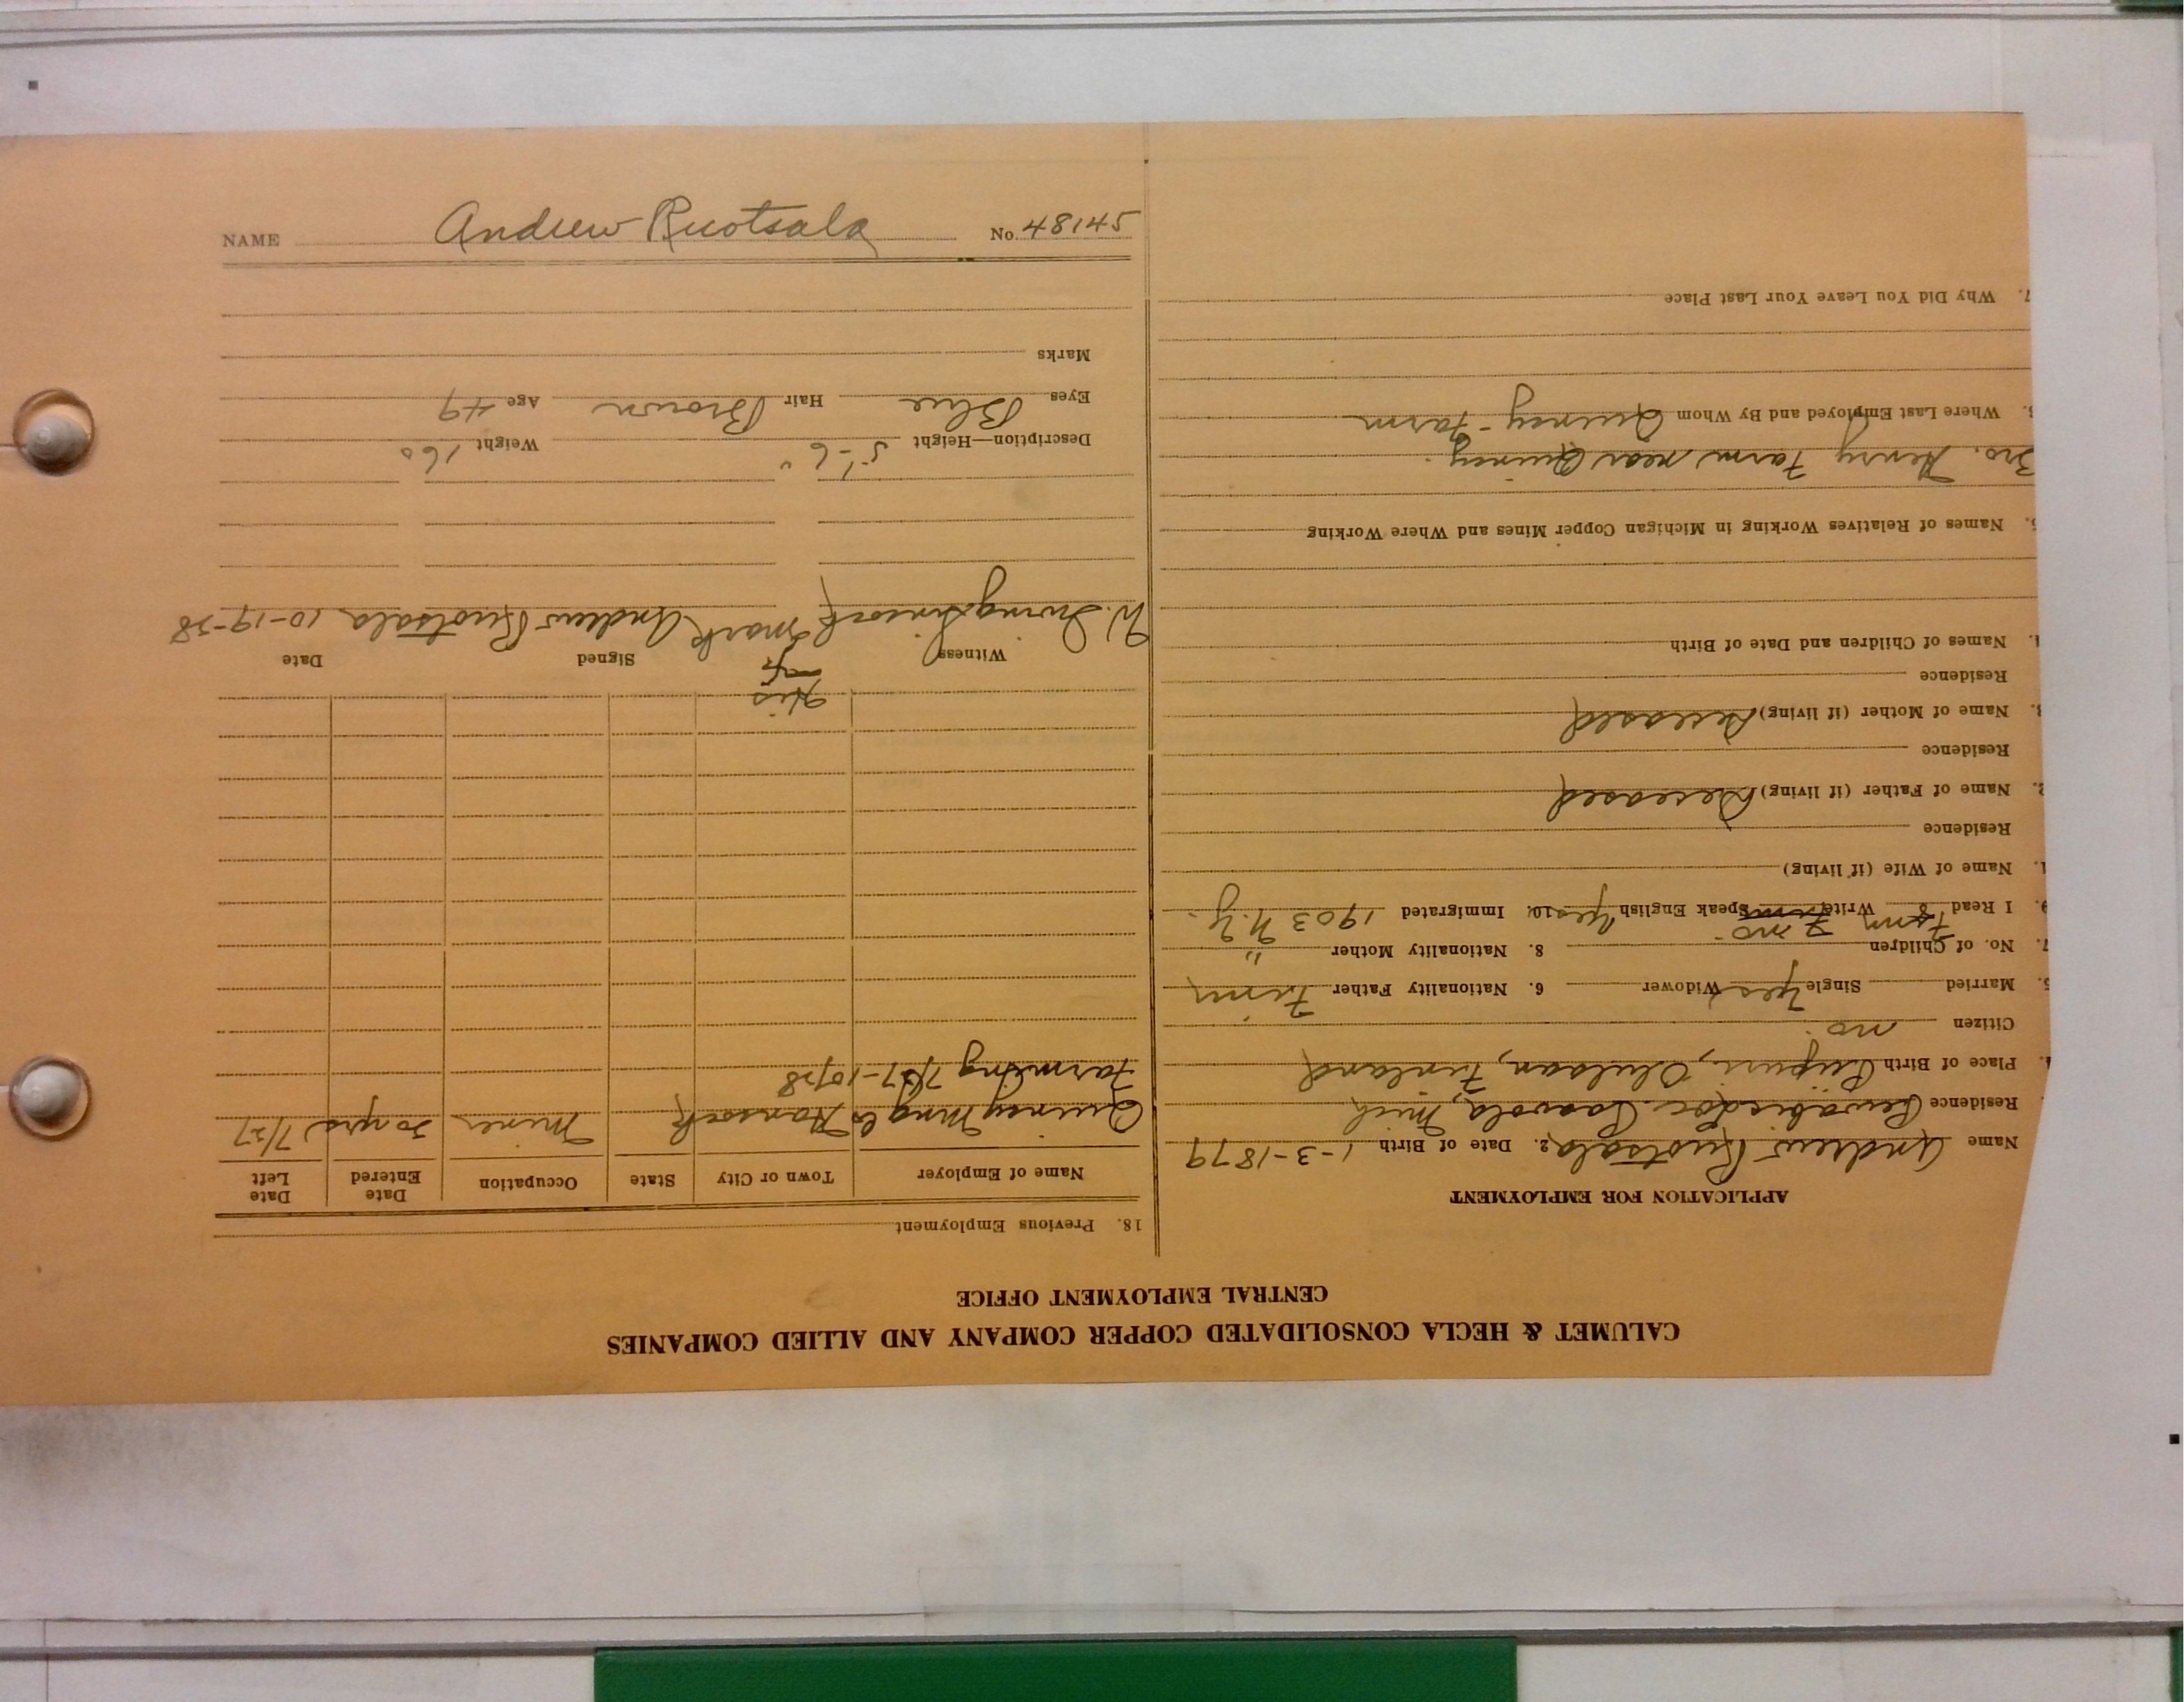 CALUMET & HECLA CONSOLIDATED COPPER COMPANY AND ALLIED COMPANIES
CENTRAL EMPLOYMENT OFFICE
APPLICATION FOR EMPLOYMENT
Name Andrew Ruotsala 2. Date of Birth 1-3-1879
Residence Paavola, Mich
Place of Birth Oulu, Finland
Citizen no.
5. Married Single Yes Widower 6. Nationality Father Finn
7. No. of Children 8. Nationality Mother "
9. I Read Finn Write no Speak English Yes 10. Immigrated 1903 N.Y.
1. Name of Wife (if living)
Residence
2. Name of Father (if living) Deceased
Residence
3. Name of Mother (if living) Deceased
Residence
Names of Children and Date of Birth
Names of Relatives Working in Michigan Copper Mines and Where Working
Bro. Henry Farm near Quincy.
Where Last Employed and By Whom Quincy - Farm
7. Why Did You Leave Your Last Place
18. Previous Employment
Name of Employer Town or City State Occupation Date Entered Date Left
Quincy Mng Co Hancock Miner 20 yrs 7/27
Farming 7/27-10/28
His
Witness Signed Date
W. mark Andrew Ruotsala 10-19-28
Description—Height 5'-6" Weight 160
Eyes Blue Hair Brown Age 49
Marks
NAME Andrew Ruotsala No. 48145